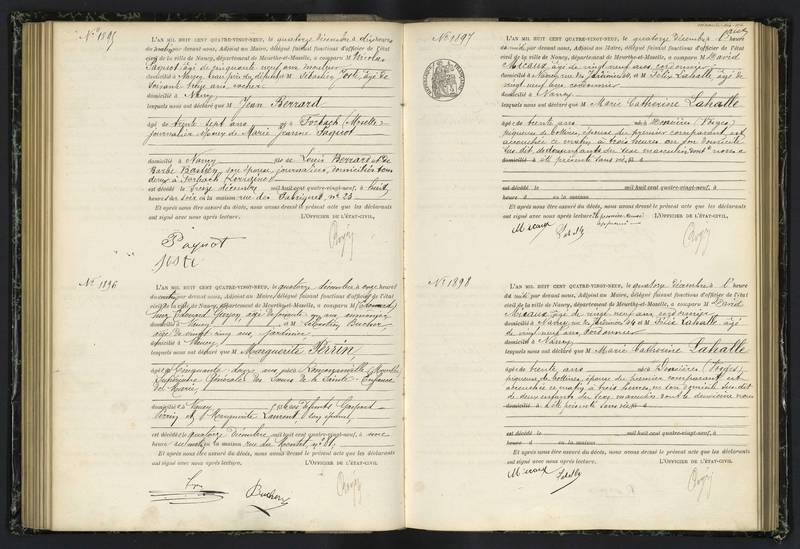 N° 1895
L'AN MIL HUIT CENT QUATRE-VINGT-NEUF, le quatorze décembre à dix heures
du matin par devant nous, Adjoint au Maire, délégué faisant fonctions d'officier de l'état
civil de la ville de Nancy, département de Meurthe-et-Moselle, a comparu M Nicolas
Paquot âgé de cinquante neuf ans
domicilié à Nancy, beau père du et M Sébastien Joste, âgé de
soixante treize ans, cocher
domicilié à Nancy,
lesquels nous ont déclaré que M Jean Berrard
âgé de trente sept ans né à Forbach (Moselle)
journalier époux de Marie Jeanne Paquot
domicilié à Nancy fils de Louis Berrard et de
Barbe son épouse, journaliers, domiciliés tous
deux à Forbach (Lorraine)
est décédé le treize décembre mil huit cent quatre-vingt-neuf, à huit
heures du soir en la maison rue des Fabriques, n° 23
Et après nous être assuré du décès, nous avons dressé le présent acte que les déclarants
ont signé avec nous après lecture. L'OFFICIER DE L'ÉTAT-CIVIL,
Paquot
Joste
N° 1896
L'AN MIL HUIT CENT QUATRE-VINGT-NEUF, le quatorze décembre à onze heures
du matin par devant nous, Adjoint au Maire, délégué faisant fonctions d'officier de l'état
civil de la ville de Nancy, département de Meurthe-et-Moselle, a comparu M
Edouard âgé de ans
domicilié à Nancy et M Sébastien Bucher
âgé de vingt cinq ans jardinier
domicilié à Nancy,
lesquels nous ont déclaré que M Marguerite Perrin,
âgée de Cinquante ans née à
Supérieure Générale des Sœurs de la Sainte Enfance
de Marie,
domiciliée à Nancy fille de défunts
Perrin et Marguerite Laurent,
est décédée le quatorze décembre mil huit cent quatre-vingt-neuf, à une
heure du matin en la maison rue du Montet, n° 81
Et après nous être assuré du décès, nous avons dressé le présent acte que les déclarants
ont signé avec nous après lecture. L'OFFICIER DE L'ÉTAT-CIVIL,
Bucher
N° 1897
L'AN MIL HUIT CENT QUATRE-VINGT-NEUF, le quatorze décembre à une heure
du soir par devant nous, Adjoint au Maire, délégué faisant fonctions d'officier de l'état
civil de la ville de Nancy, département de Meurthe-et-Moselle, a comparu M David
Micaux, âgé de vingt neuf ans cordonnier
domicilié à Nancy, rue et M Félix Lahalle âgé de
vingt neuf ans cordonnier
domicilié à Nancy
lesquels nous ont déclaré que M Marie Catherine Lahalle
âgée de trente ans née à (Vosges)
piqueuse de bottines, épouse du premier comparant est
accouchée ce matin à trois heures en son domicile
sus dit de deux enfants du sexe masculin dont
domicilié à a été présenté sans vie
est décédé le mil huit cent quatre-vingt-neuf, à
heure d en la maison
Et après nous être assuré du décès, nous avons dressé le présent acte que les déclarants
ont signé avec nous après lecture. L'OFFICIER DE L'ÉTAT-CIVIL,
Micaux
N° 1898
L'AN MIL HUIT CENT QUATRE-VINGT-NEUF, le quatorze décembre à 1 heure
du soir par devant nous, Adjoint au Maire, délégué faisant fonctions d'officier de l'état
civil de la ville de Nancy, département de Meurthe-et-Moselle, a comparu M David
Micaux, âgé de vingt neuf ans cordonnier
domicilié à Nancy, rue et M Félix Lahalle âgé
de vingt neuf ans, cordonnier
domicilié à Nancy
lesquels nous ont déclaré que M Marie Catherine Lahalle
âgée de trente ans née à (Vosges),
piqueuse de bottines, épouse du premier comparant est
accouchée ce matin à trois heures, en son domicile sus dit
de deux enfants du sexe masculin dont le deuxième
domicilié à a été présenté sans vie
est décédé le mil huit cent quatre-vingt-neuf, à
heure d en la maison
Et après nous être assuré du décès, nous avons dressé le présent acte que les déclarants
ont signé avec nous après lecture. L'OFFICIER DE L'ÉTAT-CIVIL,
Micaux